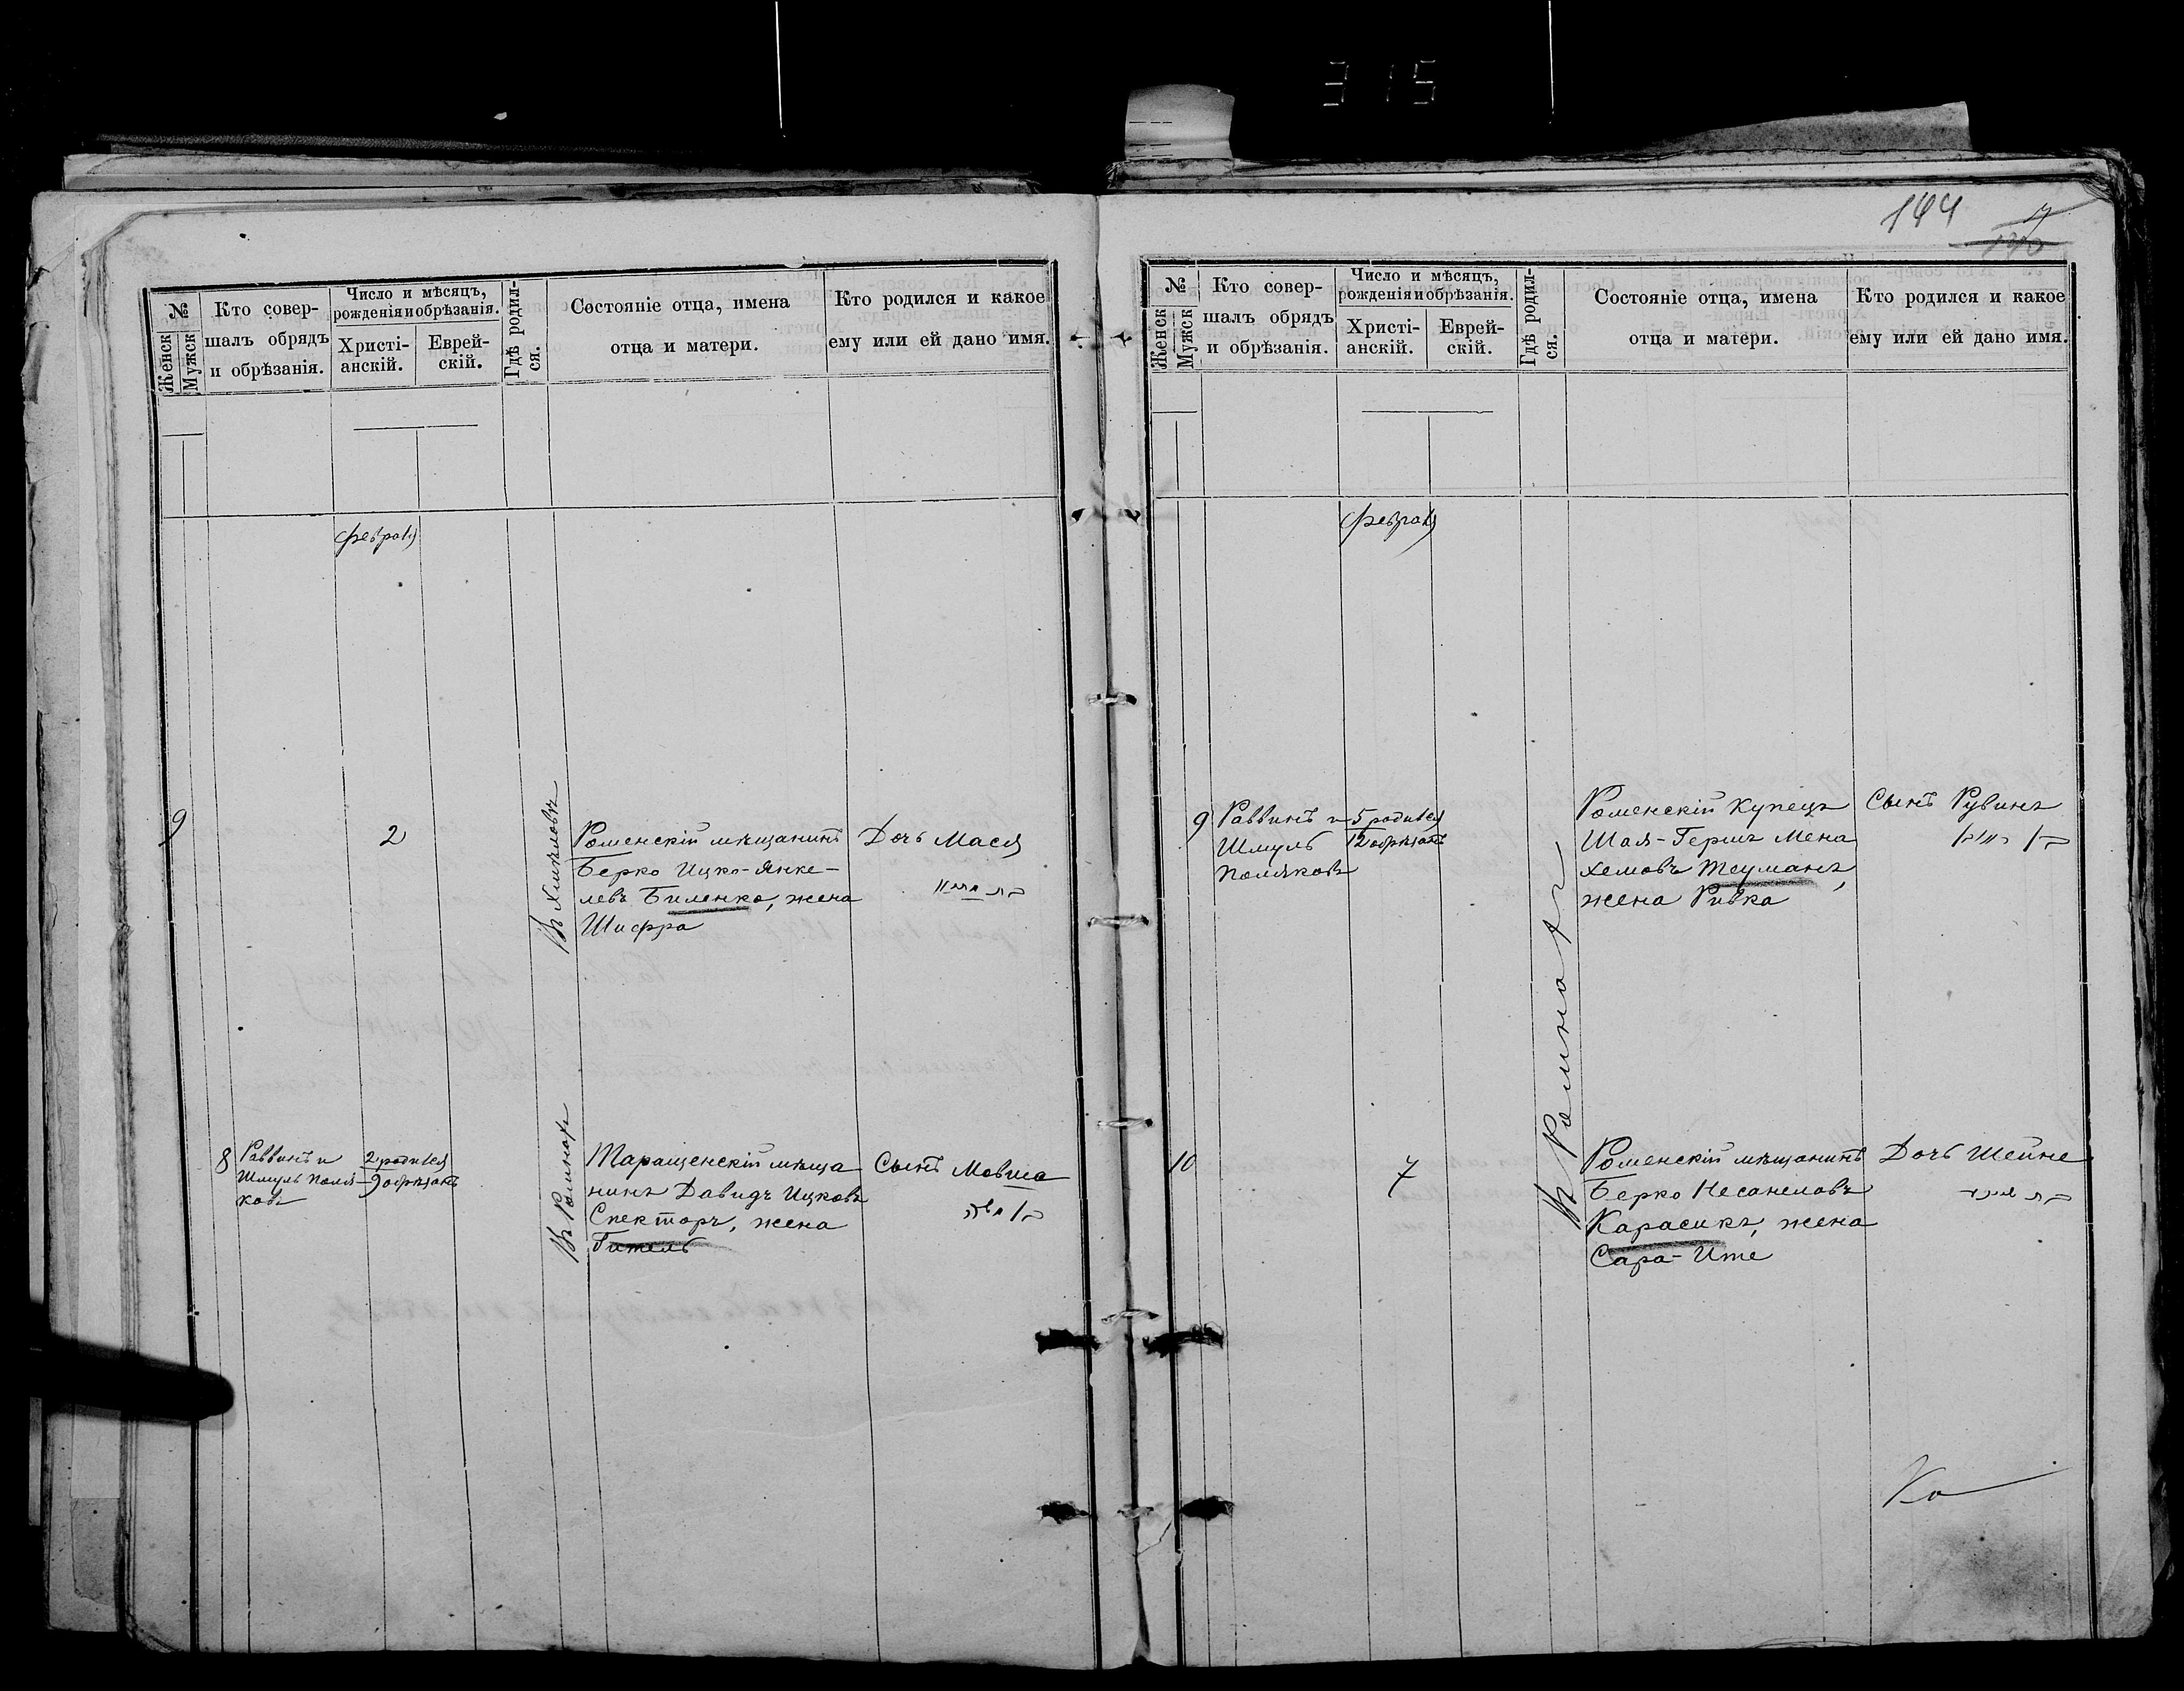 315
144
№
Женск
Мужск
Кто совер-
шалъ обрядъ
и обрѣзанія.
Число и мѣсяцъ,
рожденія и обрѣзанія.
Христі-
анскій.
Еврей-
скій.
Гдѣ родил-
ся.
Состояніе отца, имена
отца и матери.
Кто родился и какое
ему или ей дано имя.
Февраля
9
2
Въ Хмѣловѣ
Роменскій мѣщанинъ
Берко Ицко-Янке-
левъ Биленко, жена
Шифра
Дочь Мася
8
Раввинъ и
Шмуль Поля-
ковъ
2 родился
9 обрѣзанъ
Въ Ромнахъ
Таращенскій мѣща
нинъ Давидъ Ицковъ
Спекторъ, жена
Гитель
Сынъ Мовша
№
Женск
Мужск
Кто совер-
шалъ обрядъ
и обрѣзанія.
Число и мѣсяцъ,
рожденія и обрѣзанія.
Христі-
анскій.
Еврей-
скій.
Гдѣ родил-
ся.
Состояніе отца, имена
отца и матери.
Кто родился и какое
ему или ей дано имя.
Февраля
9
Раввинъ и
Шмуль
Поляковъ
5 родился
12 обрѣзанъ
Въ Ромнахъ
Роменскій купецъ
Шая-Гершъ Мена
хемовъ Теуманъ,
жена Ривка
Сынъ Рувинъ
10
7
Роменскій мѣщанинъ
Берко Несанеловъ
Карасикъ, жена
Сара-Ите
Дочь Шейне